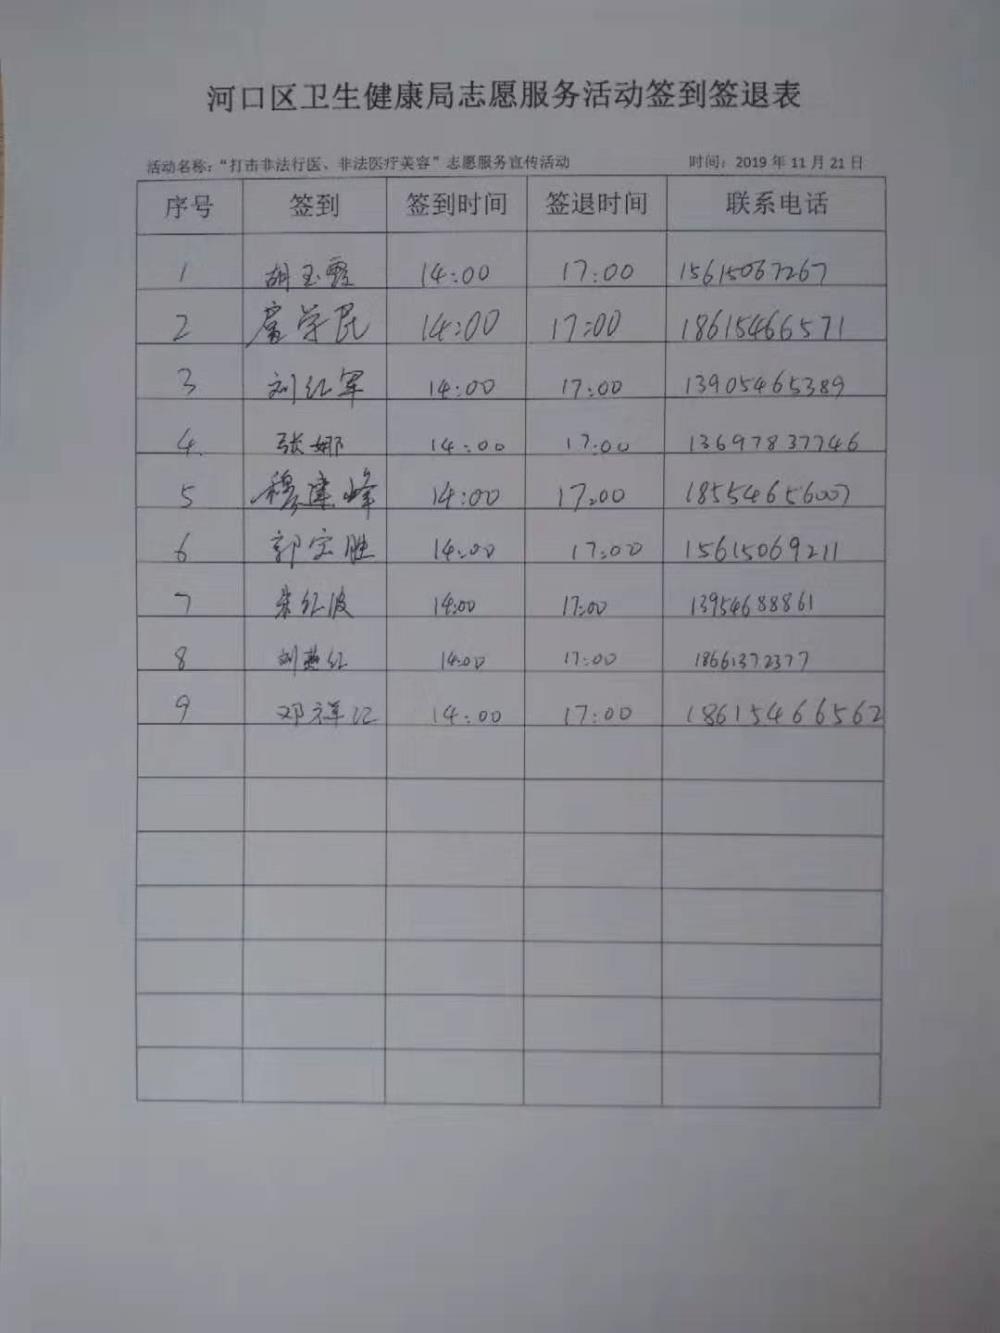 河口区卫生健康局志愿服务活动签到签退表
活动名称：“打击非法行医、非法医疗美容”志愿服务宣传活动 时间：2019 年 11 月 21 日
序号 签到 签到时间 签退时间 联系电话
1 胡玉霞 14:00 17:00 15615067267
2 扈学民 14:00 17:00 18615466571
3 刘红军 14:00 17:00 13905465389
4 张娜 14:00 17:00 13697837746
5 穆建峰 14:00 17:00 18554656007
6 郭宝胜 14:00 17:00 15615069211
7 朱红波 14:00 17:00 13954688861
8 刘燕红 14:00 17:00 18661372377
9 邓祥江 14:00 17:00 18615466562